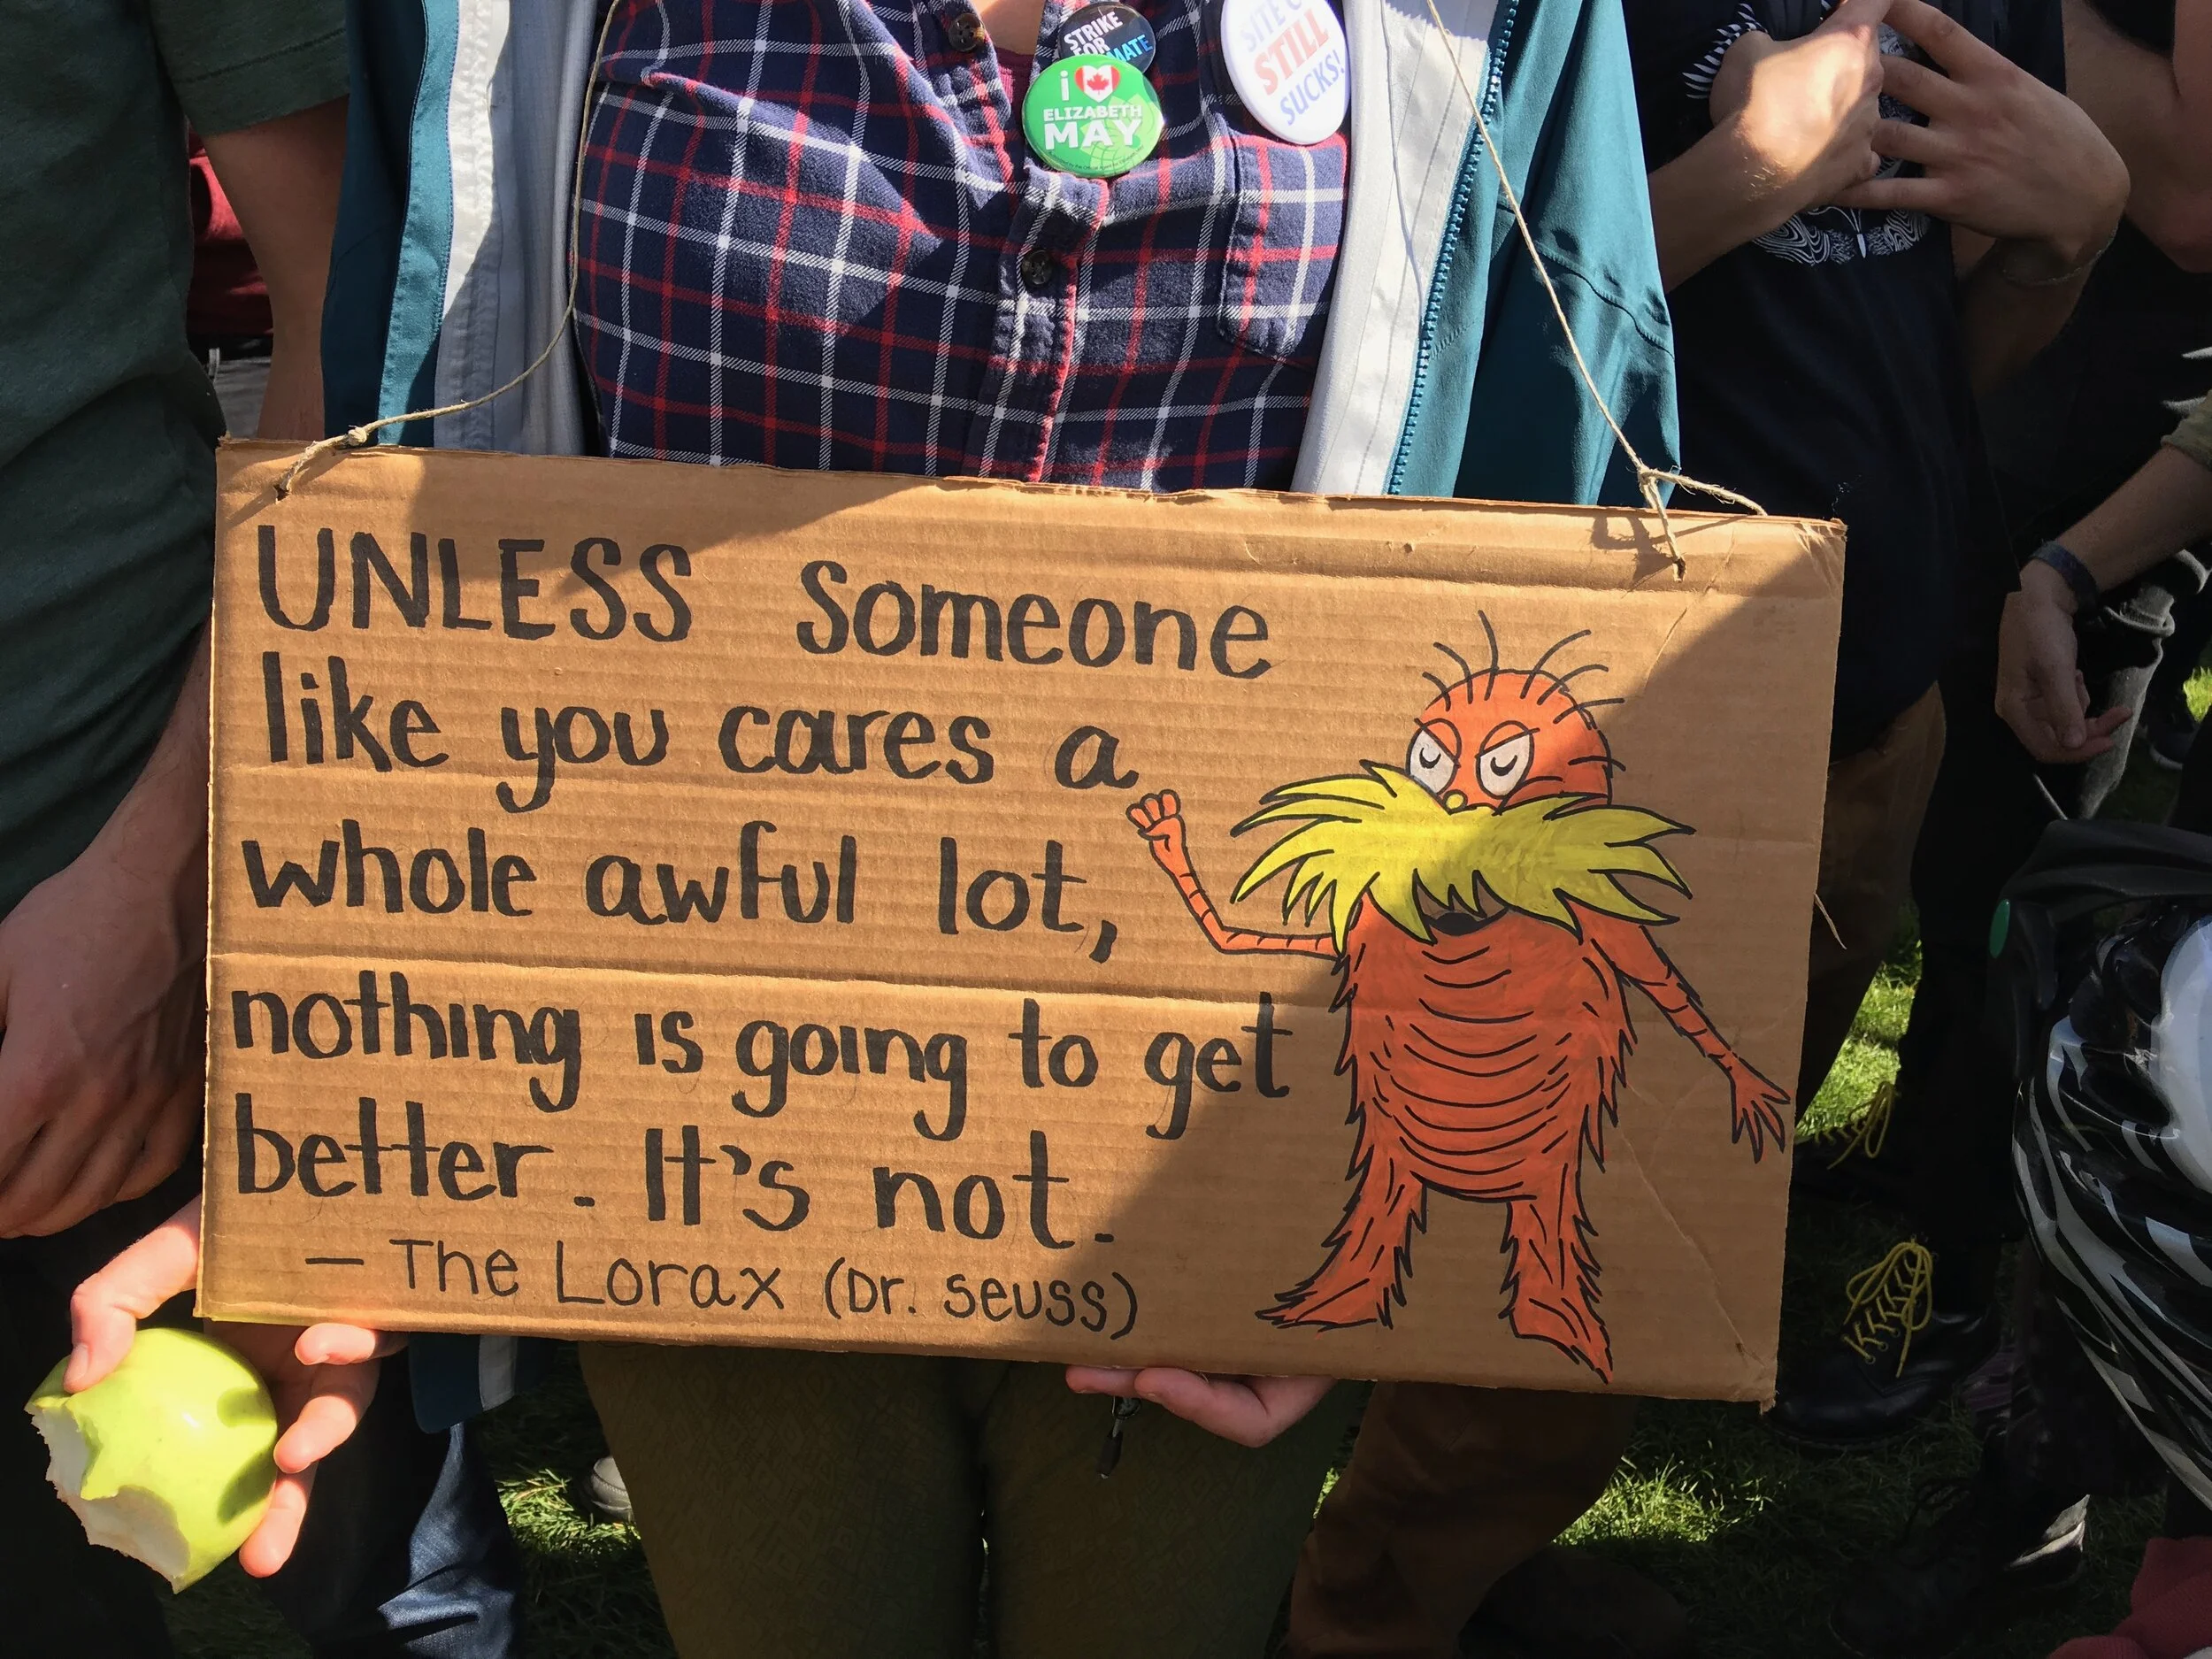 STRIKE
FOR
MATE
i
ELIZABETH
MAY
SITE C
STILL
SUCKS!
UNLESS someone
like you cares a
whole awful lot,
nothing is going to get
better. It's not.
— The Lorax (Dr. Seuss)